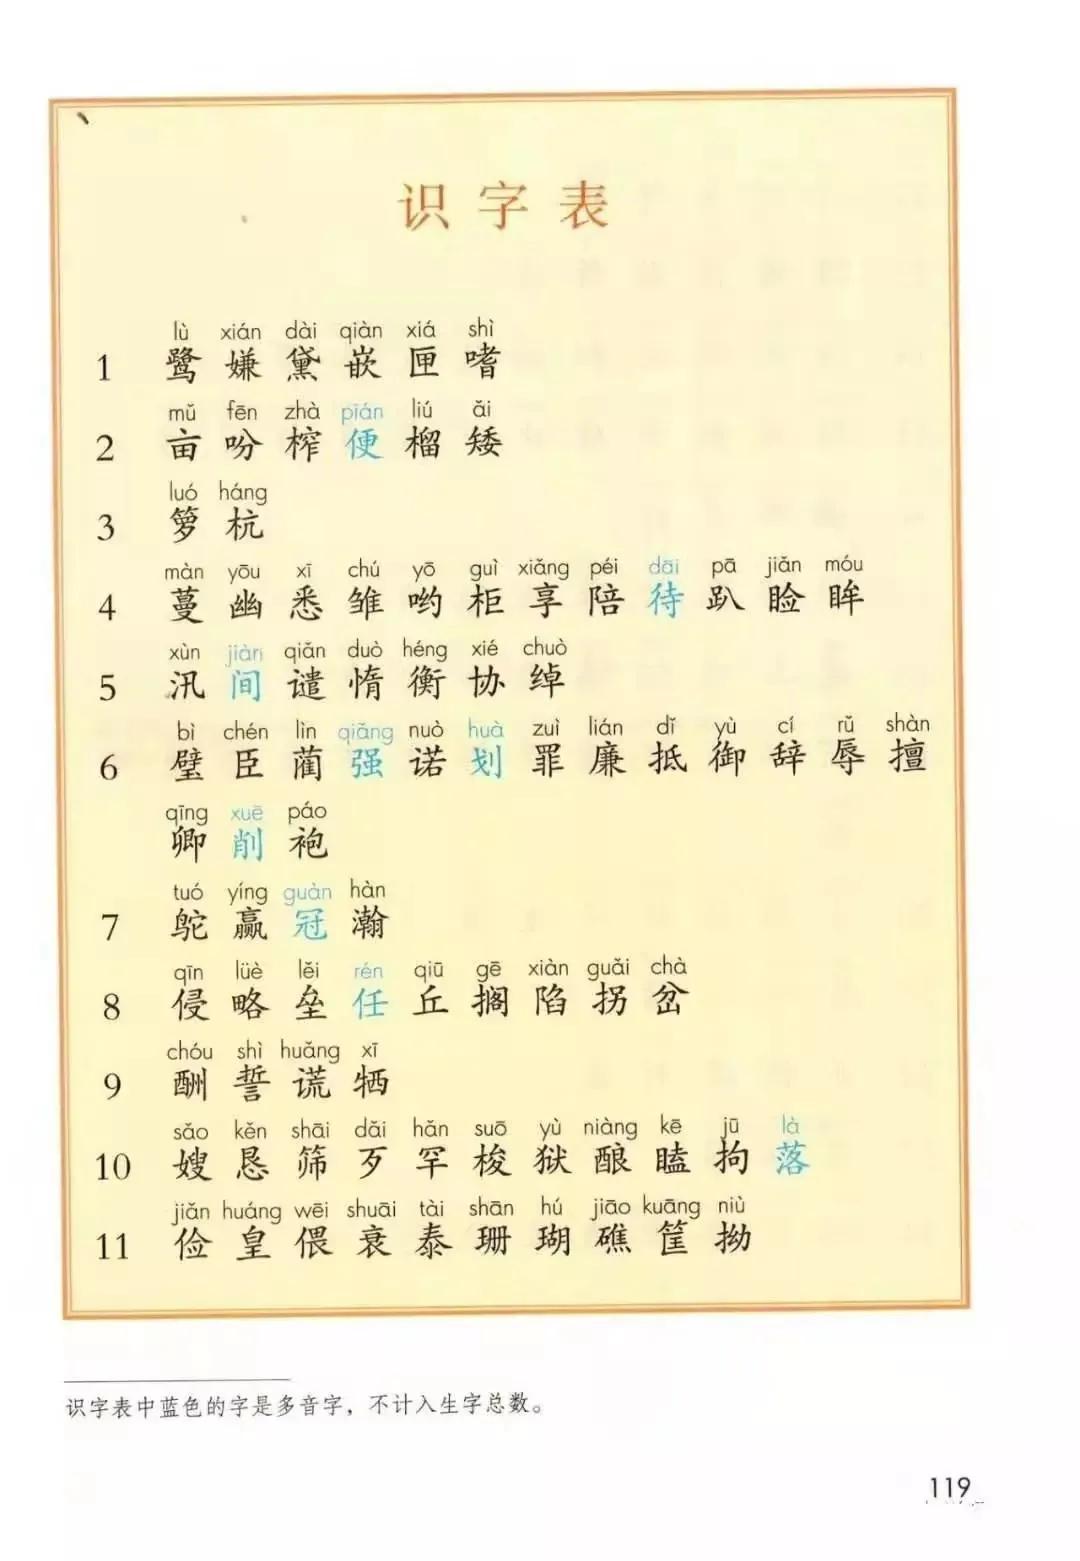 识字表
lù xián dài qiàn xiá shì
1 鹭 嫌 黛 嵌 匣 嗜
mǔ fēn zhà pián liú ǎi
2 亩 吩 榨 便 榴 矮
luó háng
3 箩 杭
màn yōu xī chú yō guì xiǎng péi dāi pā jiǎn móu
4 蔓 幽 悉 雏 哟 柜 享 陪 待 趴 睑 眸
xùn jiàn qiǎn duò héng xié chuò
5 汛 间 谴 惰 衡 协 绰
bì chén lìn qiǎng nuò huà zuì lián dǐ yù cí rǔ shàn
6 璧 臣 蔺 强 诺 划 罪 廉 抵 御 辞 辱 擅
qīng xuē páo
卿 削 袍
tuó yíng guàn hàn
7 鸵 赢 冠 瀚
qīn lüè lěi rén qiū gē xiàn guǎi chà
8 侵 略 垒 任 丘 搁 陷 拐 岔
chóu shì huǎng xī
9 酬 誓 谎 牺
sǎo kěn shāi dǎi hǎn suō yù niàng kē jū là
10 嫂 恳 筛 歹 罕 梭 狱 酿 瞌 拘 落
jiǎn huáng wēi shuāi tài shān hú jiāo kuāng niù
11 俭 皇 偎 衰 泰 珊 瑚 礁 筐 拗
识字表中蓝色的字是多音字，不计入生字总数。
119